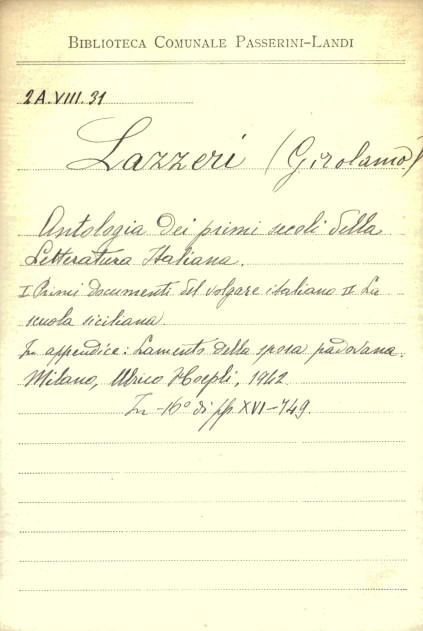 BIBLIOTECA COMUNALE PASSERINI-LANDI
2A.VIII.31
Lazzeri (Girolamo)
Antologia dei primi secoli della
Letteratura Italiana.
I Primi documenti del volgare italiano II La
scuola siciliana
In appendice: Lamento della sposa padovana.
Milano, Ulrico Hoepli, 1942
In -16° di pp. XVI-749.